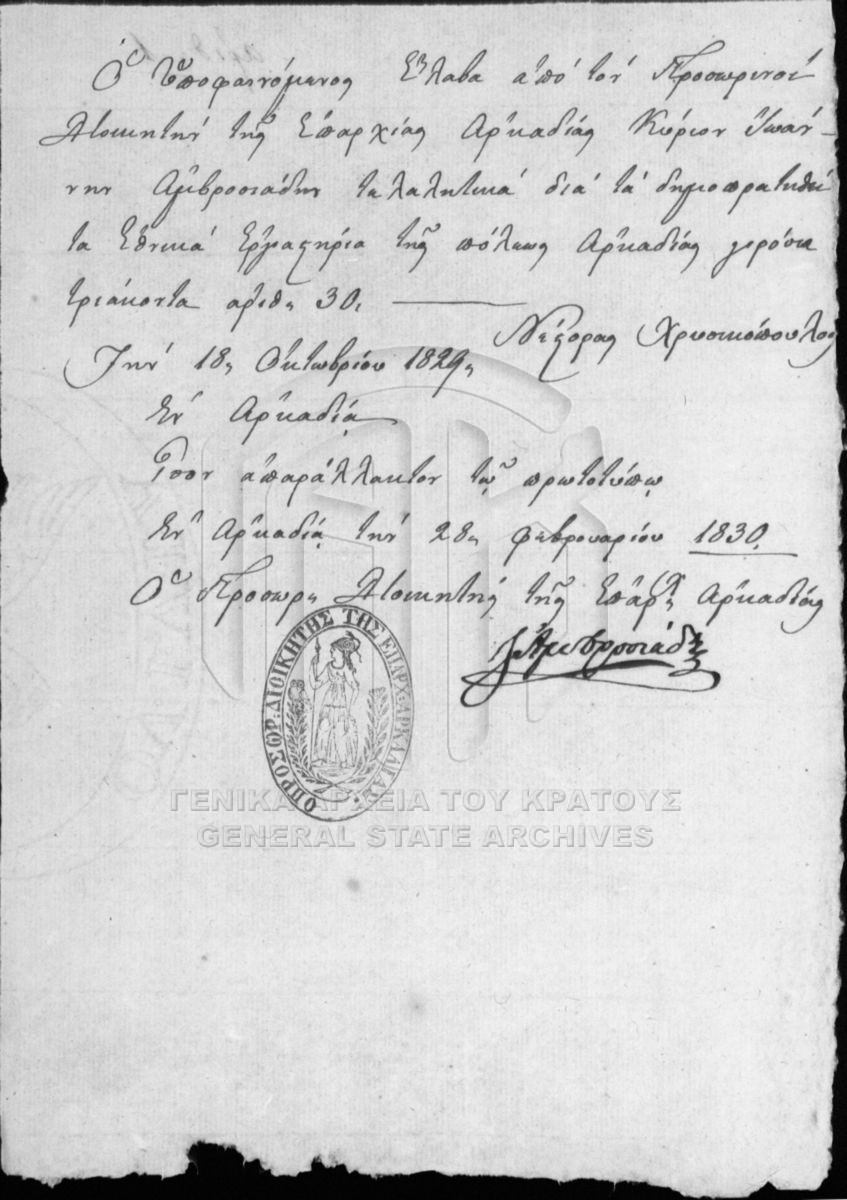 Ὁ Ὑποφαινόμενος ἔλαβα ἀπό τόν Προσωρινόν
Διοικητήν τῆς ἐπαρχίας Ἀρκαδίας Κύριον Ἰωάν-
νην Ἀμβροσιάδην τελαλητικά διά τά δημοπρατηθέ
τα ἐθνικά ἐργαστήρια τῆς πόλεως Ἀρκαδίας γρόσια
τριάκοντα ἀριθ. 30.
Νέστορας Χρυσικόπουλος
Τήν 18 Ὀκτωβρίου 1829
Ἐν Ἀρκαδίᾳ
Ἴσον ἀπαράλλακτον τῷ πρωτοτύπῳ
Ἐν Ἀρκαδίᾳ τήν 28 φεβρουαρίου 1830
Ὁ Προσωρ. Διοικητής τῆς Ἐπαρχ. Ἀρκαδίας
Ι. Ἀμβροσιάδης
Ο ΠΡΟΣΩΡ: ΔΙΟΙΚΗΤΗΣ ΤΗΣ ΕΠΑΡΧ: ΑΡΚΑΔΙΑΣ.
ΓΕΝΙΚΑ ΑΡΧΕΙΑ ΤΟΥ ΚΡΑΤΟΥΣ
GENERAL STATE ARCHIVES